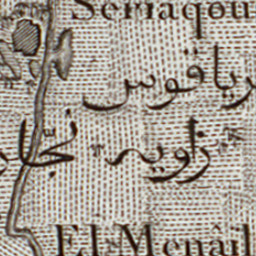 Seriaqou
رياقوس
زاوية نجار
El Menâil